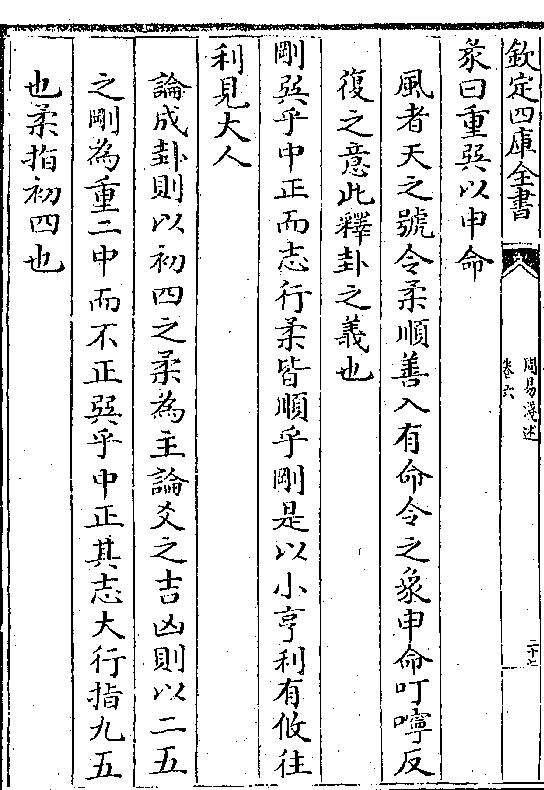 欽定四庫全書
周易淺述
卷六
二十七
彖曰重巽以申命
風者天之號令柔順善入有命令之象申命叮嚀反
復之意此釋卦之義也
剛巽乎中正而志行柔皆順乎剛是以小亨利有攸往
利見大人
論成卦則以初四之柔為主論爻之吉凶則以二五
之剛為重二中而不正巽乎中正其志大行指九五
也柔指初四也